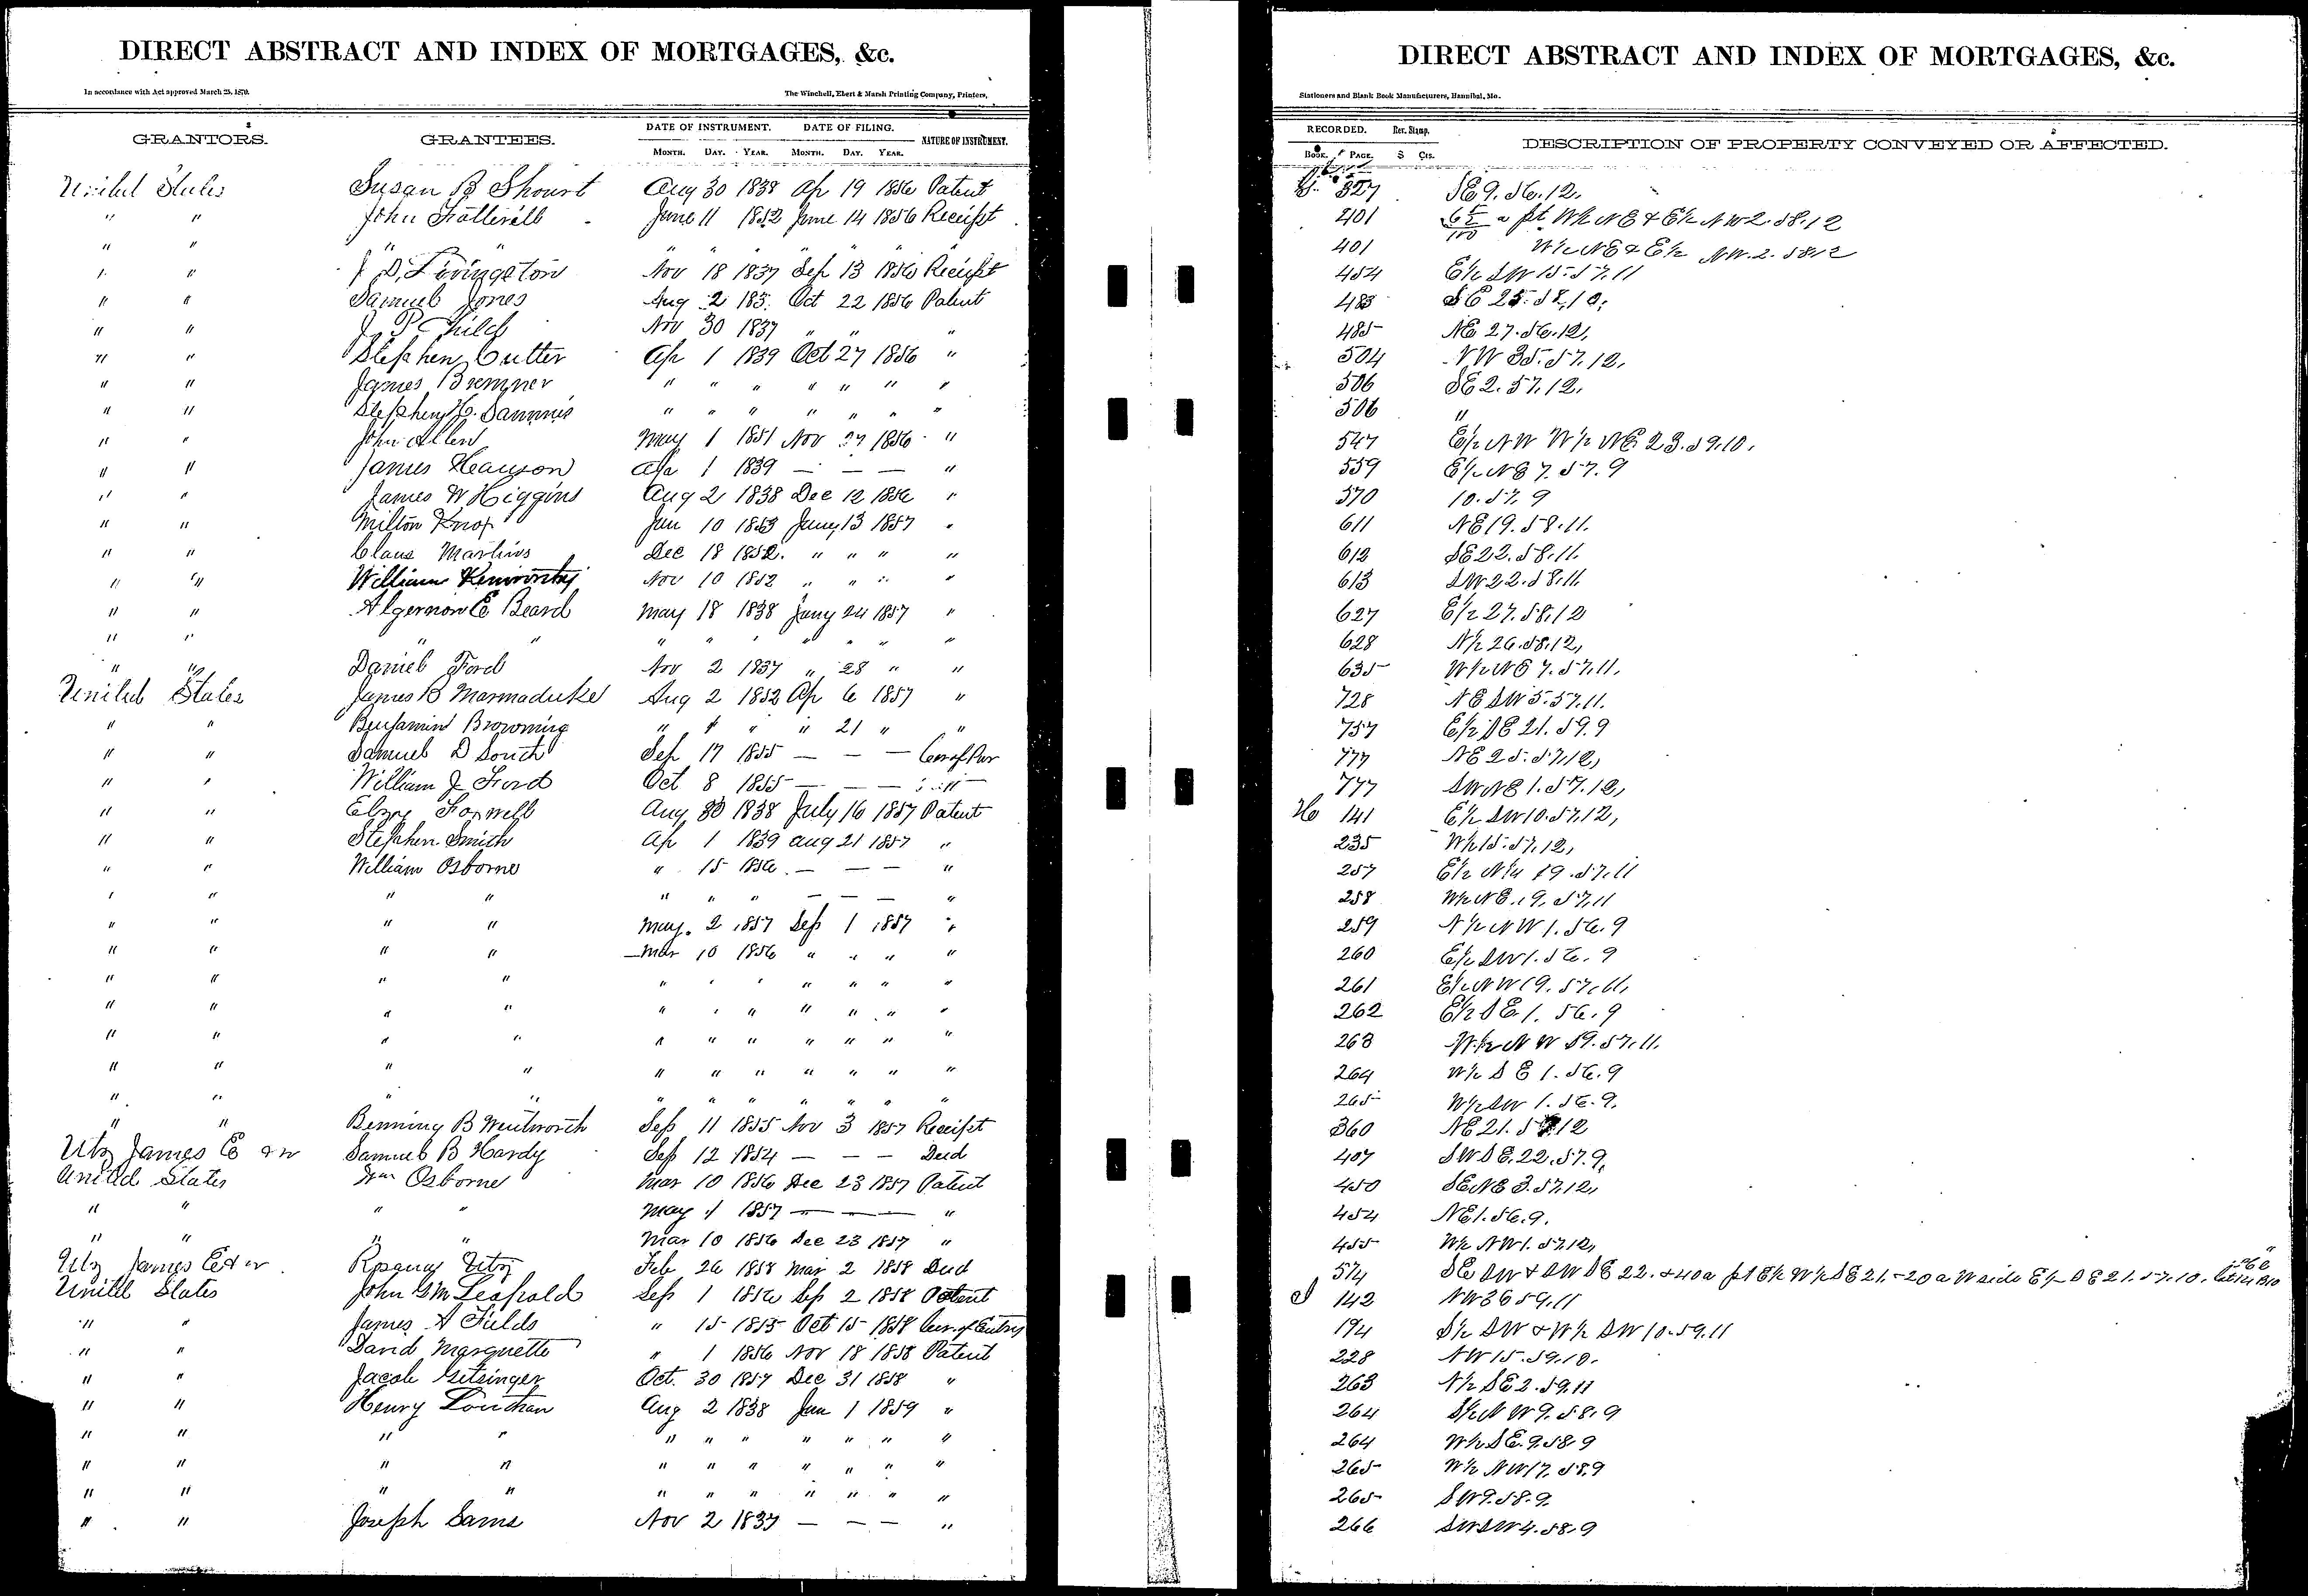 DIRECT ABSTRACT AND INDEX OF MORTGAGES, &c.
In accordance with Act approved March 25, 1870. The Winchell, Ebert & Marsh Printing Company, Printers,
GRANTORS. GRANTEES. DATE OF INSTRUMENT. DATE OF FILING. NATURE OF INSTRUMENT.
MONTH. DAY. YEAR. MONTH. DAY. YEAR.
United States Susan B Shourt Aug 30 1838 Ap 19 1856 Patent
" " John June 11 1852 June 14 1856 Receipt
" " " " " " " " " " "
" " J D. Livingston Nov 18 1837 Sep 13 1856 Receipt
" " Samuel Jones Aug 2 185. Oct 22 1856 Patent
" " J P Child Nov 30 1837 " " "
" " Stephen Cutter Ap 1 1839 Oct 27 1856 "
" " James Bremner " " " " " " "
" " Stephen G. Sammis " " " " " " "
" " John Allen May 1 1851 Nov 27 1856 "
" " James Heayson Ap 1 1839 — — — "
" " James W Higgins Aug 2 1838 Dec 12 1856 "
" " Milton Knox Jan 10 1853 Jany 13 1857 "
" " Claus Martins Dec 18 1852. " " " "
" " William Kenworthy Nov 10 1852 " " " "
" " Algernon E Beard May 18 1838 Jany 24 1857 "
" " " " " " " " " " "
" " Daniel Ford Nov 2 1837 " 28 " "
United States James B Marmaduke Aug 2 1852 Ap 6 1857 "
" " Benjamin Browning " " " " 21 " "
" " Samuel D South Sep 17 1855 — — — Cer of Pur
" " William J Ford Oct 8 1855 — — — "
" " Elzy Foxwell Aug 30 1838 July 16 1857 Patent
" " Stephen Smith Ap 1 1839 Aug 21 1857 "
" " William Osborne " 15 1856. — — — "
" " " " " " " — — — "
" " " " May. 2 1857 Sep 1 1857 "
" " " " Mar 10 1856 " " " "
" " " " " " " " " " "
" " " " " " " " " " "
" " " " " " " " " " "
" " " " " " " " " " "
" " " " " " " " " " "
" " Benning B Wentworth Sep 11 1855 Nov 3 1857 Receipt
Utz James E & w Samuel B Hardy Sep 12 1854 — — — Deed
United States Wm Osborne Mar 10 1856 Dec 23 1857 Patent
" " " " May 1 1857 — — — "
" " " " Mar 10 1856 Dec 23 1857 "
Utz James E & w. Rosanna Utz Feb 26 1858 Mar 2 1858 Deed
United States John G M Leopold Sep 1 1856 Sep 2 1858 Patent
" " James A Fields " 15 1855 Oct 15 1858 Cer. of Entry
" " David Marquette " 1 1856 Nov 18 1858 Patent
" " Jacob Getsinger Oct. 30 1857 Dec 31 1858 "
" " Henry Louthan Aug 2 1838 Jan 1 1859 "
" " " " " " " " " " "
" " " " " " " " " " "
" " " " " " " " " " "
" " Joseph Sams Nov 2 1837 — — — "
DIRECT ABSTRACT AND INDEX OF MORTGAGES, &c.
Stationers and Blank Book Manufacturers, Hannibal, Mo.
RECORDED. Rev. Stamp. DESCRIPTION OF PROPERTY CONVEYED OR AFFECTED.
BOOK. PAGE. $ Cts.
G. 327 SE 9. 56. 12.
401 a pt W½ NE & E½ NW 2. 58. 12
401 W½ NE & E½ NW. 2. 58 12
454 E½ SW 15. 57. 11
483 SE 25. 58. 10.
485 NE 27. 56. 12.
504 NW 35. 57. 12.
506 SE 2. 57. 12.
506 "
547 E½ NW W½ NE 23. 59. 10.
559 E½ NE 7. 57. 9
570 10. 57. 9
611 NE 19. 58. 11.
612 SE 22. 58. 11.
613 SW 22. 58. 11.
627 E½ 27. 58. 12
628 N½ 26. 58. 12,
635 W½ NE 7. 57. 11.
728 NE SW 5. 57. 11.
757 E½ SE 21. 59. 9
777 NE 25. 57. 12,
777 SW NE 1. 57. 12,
H 141 E½ SW 10. 57. 12,
235 W½ 15. 57. 12,
257 E½ 19. 57. 11
258 W½ NE. 19. 57. 11
259 N½ NW 1. 56. 9
260 E½ SW 1. 56. 9
261 E½ NW 19. 57. 11,
262 E½ SE. 1. 56. 9
263 W½ NW 19. 57. 11.
264 W½ SE 1. 56. 9
265 W½ SW 1. 56. 9.
360 NE 21. 57. 12
407 SW SE. 22. 57. 9.
450 SE NE 3. 57. 12,
454 NE 1. 56. 9.
455 W½ NW 1. 57. 12,
574 SE SW & SW SE 22. & 40a pt E½ W½ SE 21. - 20 a W side E½ SE 21. 57. 10.
I 142 NW 36 59. 11
194 S½ SW & W½ SW 10. 59. 11
228 NW 15. 59. 10.
263 N½ SE 2. 59. 11
264 S½ NW 9. 58. 9
264 W½ SE. 9. 58. 9
265 W½ NW 17. 58. 9
265 SW 9. 58. 9.
266 SW SW 4. 58. 9